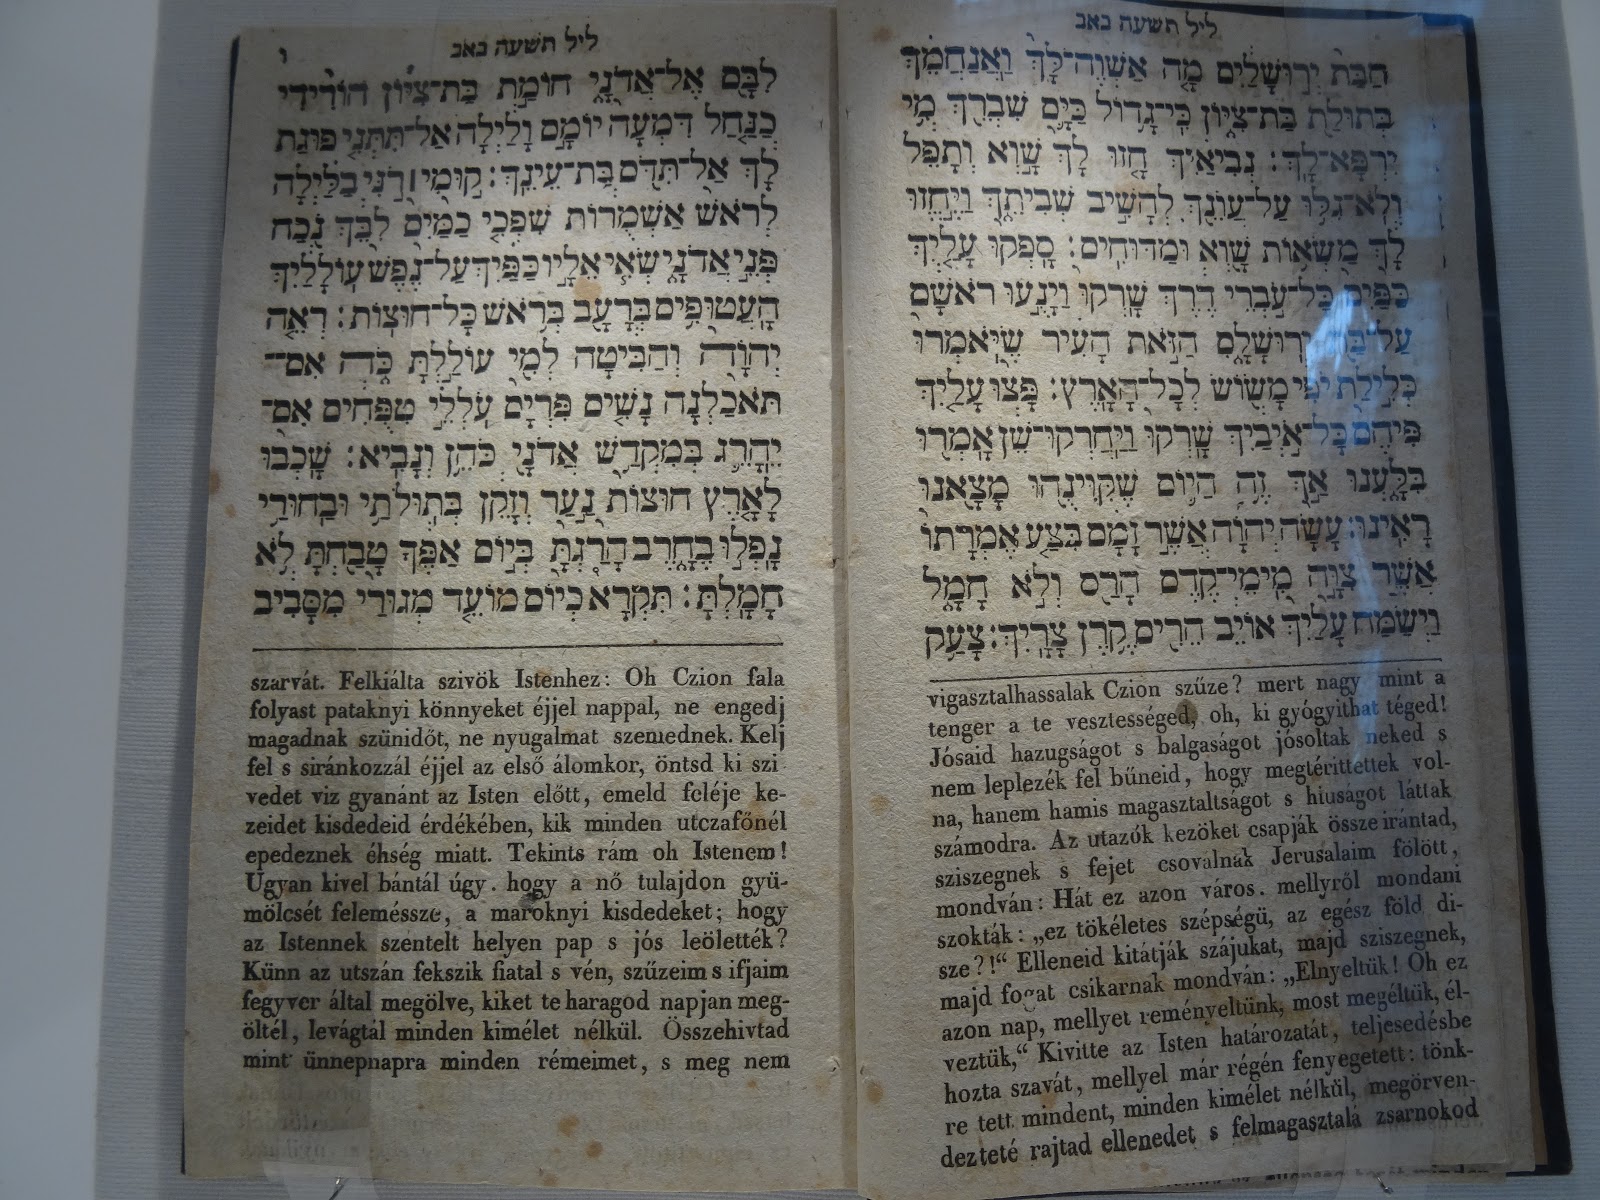 ליל תשעה באב
הַבַּת יְרוּשָׁלַיִם מָה אַשְׁוֶה־לָּךְ וַאֲנַחֲמֵךְ
בְּתוּלַת בַּת־צִיּוֹן כִּי־גָדוֹל כַּיָּם שִׁבְרֵךְ מִי
יִרְפָּא־לָךְ׃ נְבִיאַיִךְ חָזוּ לָךְ שָׁוְא וְתָפֵל
וְלֹא־גִלּוּ עַל־עֲוֹנֵךְ לְהָשִׁיב שְׁבִיתֵךְ וַיֶּחֱזוּ
לָךְ מַשְׂאוֹת שָׁוְא וּמַדּוּחִים׃ סָפְקוּ עָלַיִךְ
כַּפַּיִם כָּל־עֹבְרֵי דֶרֶךְ שָׁרְקוּ וַיָּנִעוּ רֹאשָׁם
עַל־בַּת יְרוּשָׁלָם הֲזֹאת הָעִיר שֶׁיֹּאמְרוּ
כְּלִילַת יֹפִי מָשׂוֹשׂ לְכָל־הָאָרֶץ׃ פָּצוּ עָלַיִךְ
פִּיהֶם כָּל־אֹיְבַיִךְ שָׁרְקוּ וַיַּחַרְקוּ־שֵׁן אָמְרוּ
בִּלָּעְנוּ אַךְ זֶה הַיּוֹם שֶׁקִּוִּינֻהוּ מָצָאנוּ
רָאִינוּ׃ עָשָׂה יְהוָֹה אֲשֶׁר זָמָם בִּצַּע אֶמְרָתוֹ
אֲשֶׁר צִוָּה מִימֵי־קֶדֶם הָרַס וְלֹא חָמָל
וַיְשַׂמַּח עָלַיִךְ אוֹיֵב הֵרִים קֶרֶן צָרָיִךְ׃ צָעַק
vigasztalhassalak Czion szűze? mert nagy mint a
tenger a te vesztességed, oh, ki gyógyithat téged!
Jósaid hazugságot s balgaságot jósoltak neked s
nem leplezék fel bűneid, hogy megtérittettek vol-
na, hanem hamis magasztaltságot s hiuságot láttak
számodra. Az utazók kezöket csapják össze irántad,
sziszegnek s fejet csovalnak Jerusalaim fölött,
mondván: Hát ez azon város. mellyről mondani
szokták: „ez tökéletes szépségü, az egész föld di-
sze?!“ Elleneid kitátják szájukat, majd sziszegnek,
majd fogat csikarnak mondván: „Elnyeltük! Oh ez
azon nap, mellyet reményeltünk, most megéltük, él-
veztük,“ Kivitte az Isten határozatát, teljesedésbe
hozta szavát, mellyel már régén fenyegetett: tönk-
re tett mindent, minden kimélet nélkül, megörven-
dezteté rajtad ellenedet s felmagasztalá zsarnokod
ליל תשעה באב ו
לִבָּם אֶל־אֲדֹנָי חוֹמַת בַּת־צִיּוֹן הוֹרִידִי
כַנַּחַל דִּמְעָה יוֹמָם וָלַיְלָה אַל־תִּתְּנִי פוּגַת
לָךְ אַל־תִּדֹּם בַּת־עֵינֵךְ׃ קוּמִי׀רֹנִּי בַלַּיְלָה
לְרֹאשׁ אַשְׁמֻרוֹת שִׁפְכִי כַמַּיִם לִבֵּךְ נֹכַח
פְּנֵי אֲדֹנָי שְׂאִי אֵלָיו כַּפַּיִךְ עַל־נֶפֶשׁ עוֹלָלַיִךְ
הָעֲטוּפִים בְּרָעָב בְּרֹאשׁ כָּל־חוּצוֹת׃ רְאֵה
יְהוָֹה וְהַבִּיטָה לְמִי עוֹלַלְתָּ כֹּה אִם־
תֹּאכַלְנָה נָשִׁים פִּרְיָם עֹלְלֵי טִפֻּחִים אִם־
יֵהָרֵג בְּמִקְדַּשׁ אֲדֹנָי כֹּהֵן וְנָבִיא׃ שָׁכְבוּ
לָאָרֶץ חוּצוֹת נַעַר וְזָקֵן בְּתוּלֹתַי וּבַחוּרַי
נָפְלוּ בֶחָרֶב הָרַגְתָּ בְּיוֹם אַפֶּךָ טָבַחְתָּ לֹא
חָמָלְתָּ׃ תִּקְרָא כְיוֹם מוֹעֵד מְגוּרַי מִסָּבִיב
szarvát. Felkiálta szivök Istenhez: Oh Czion fala
folyast pataknyi könnyeket éjjel nappal, ne engedj
magadnak szünidőt, ne nyugalmat szemednek. Kelj
fel s siránkozzál éjjel az első álomkor, öntsd ki szi
vedet viz gyanánt az Isten előtt, emeld feléje ke-
zeidet kisdedeid érdékében, kik minden utczafőnél
epedeznek éhség miatt. Tekints rám oh Istenem!
Ugyan kivel bántál úgy. hogy a nő tulajdon gyü-
mölcsét felemészsze, a maroknyi kisdedeket; hogy
az Istennek szentelt helyen pap s jós leölették?
Künn az utszán fekszik fiatal s vén, szűzeim s ifjaim
fegyver által megölve, kiket te haragod napjan meg-
öltél, levágtál minden kimélet nélkül. Összehivtad
mint ünnepnapra minden rémeimet, s meg nem